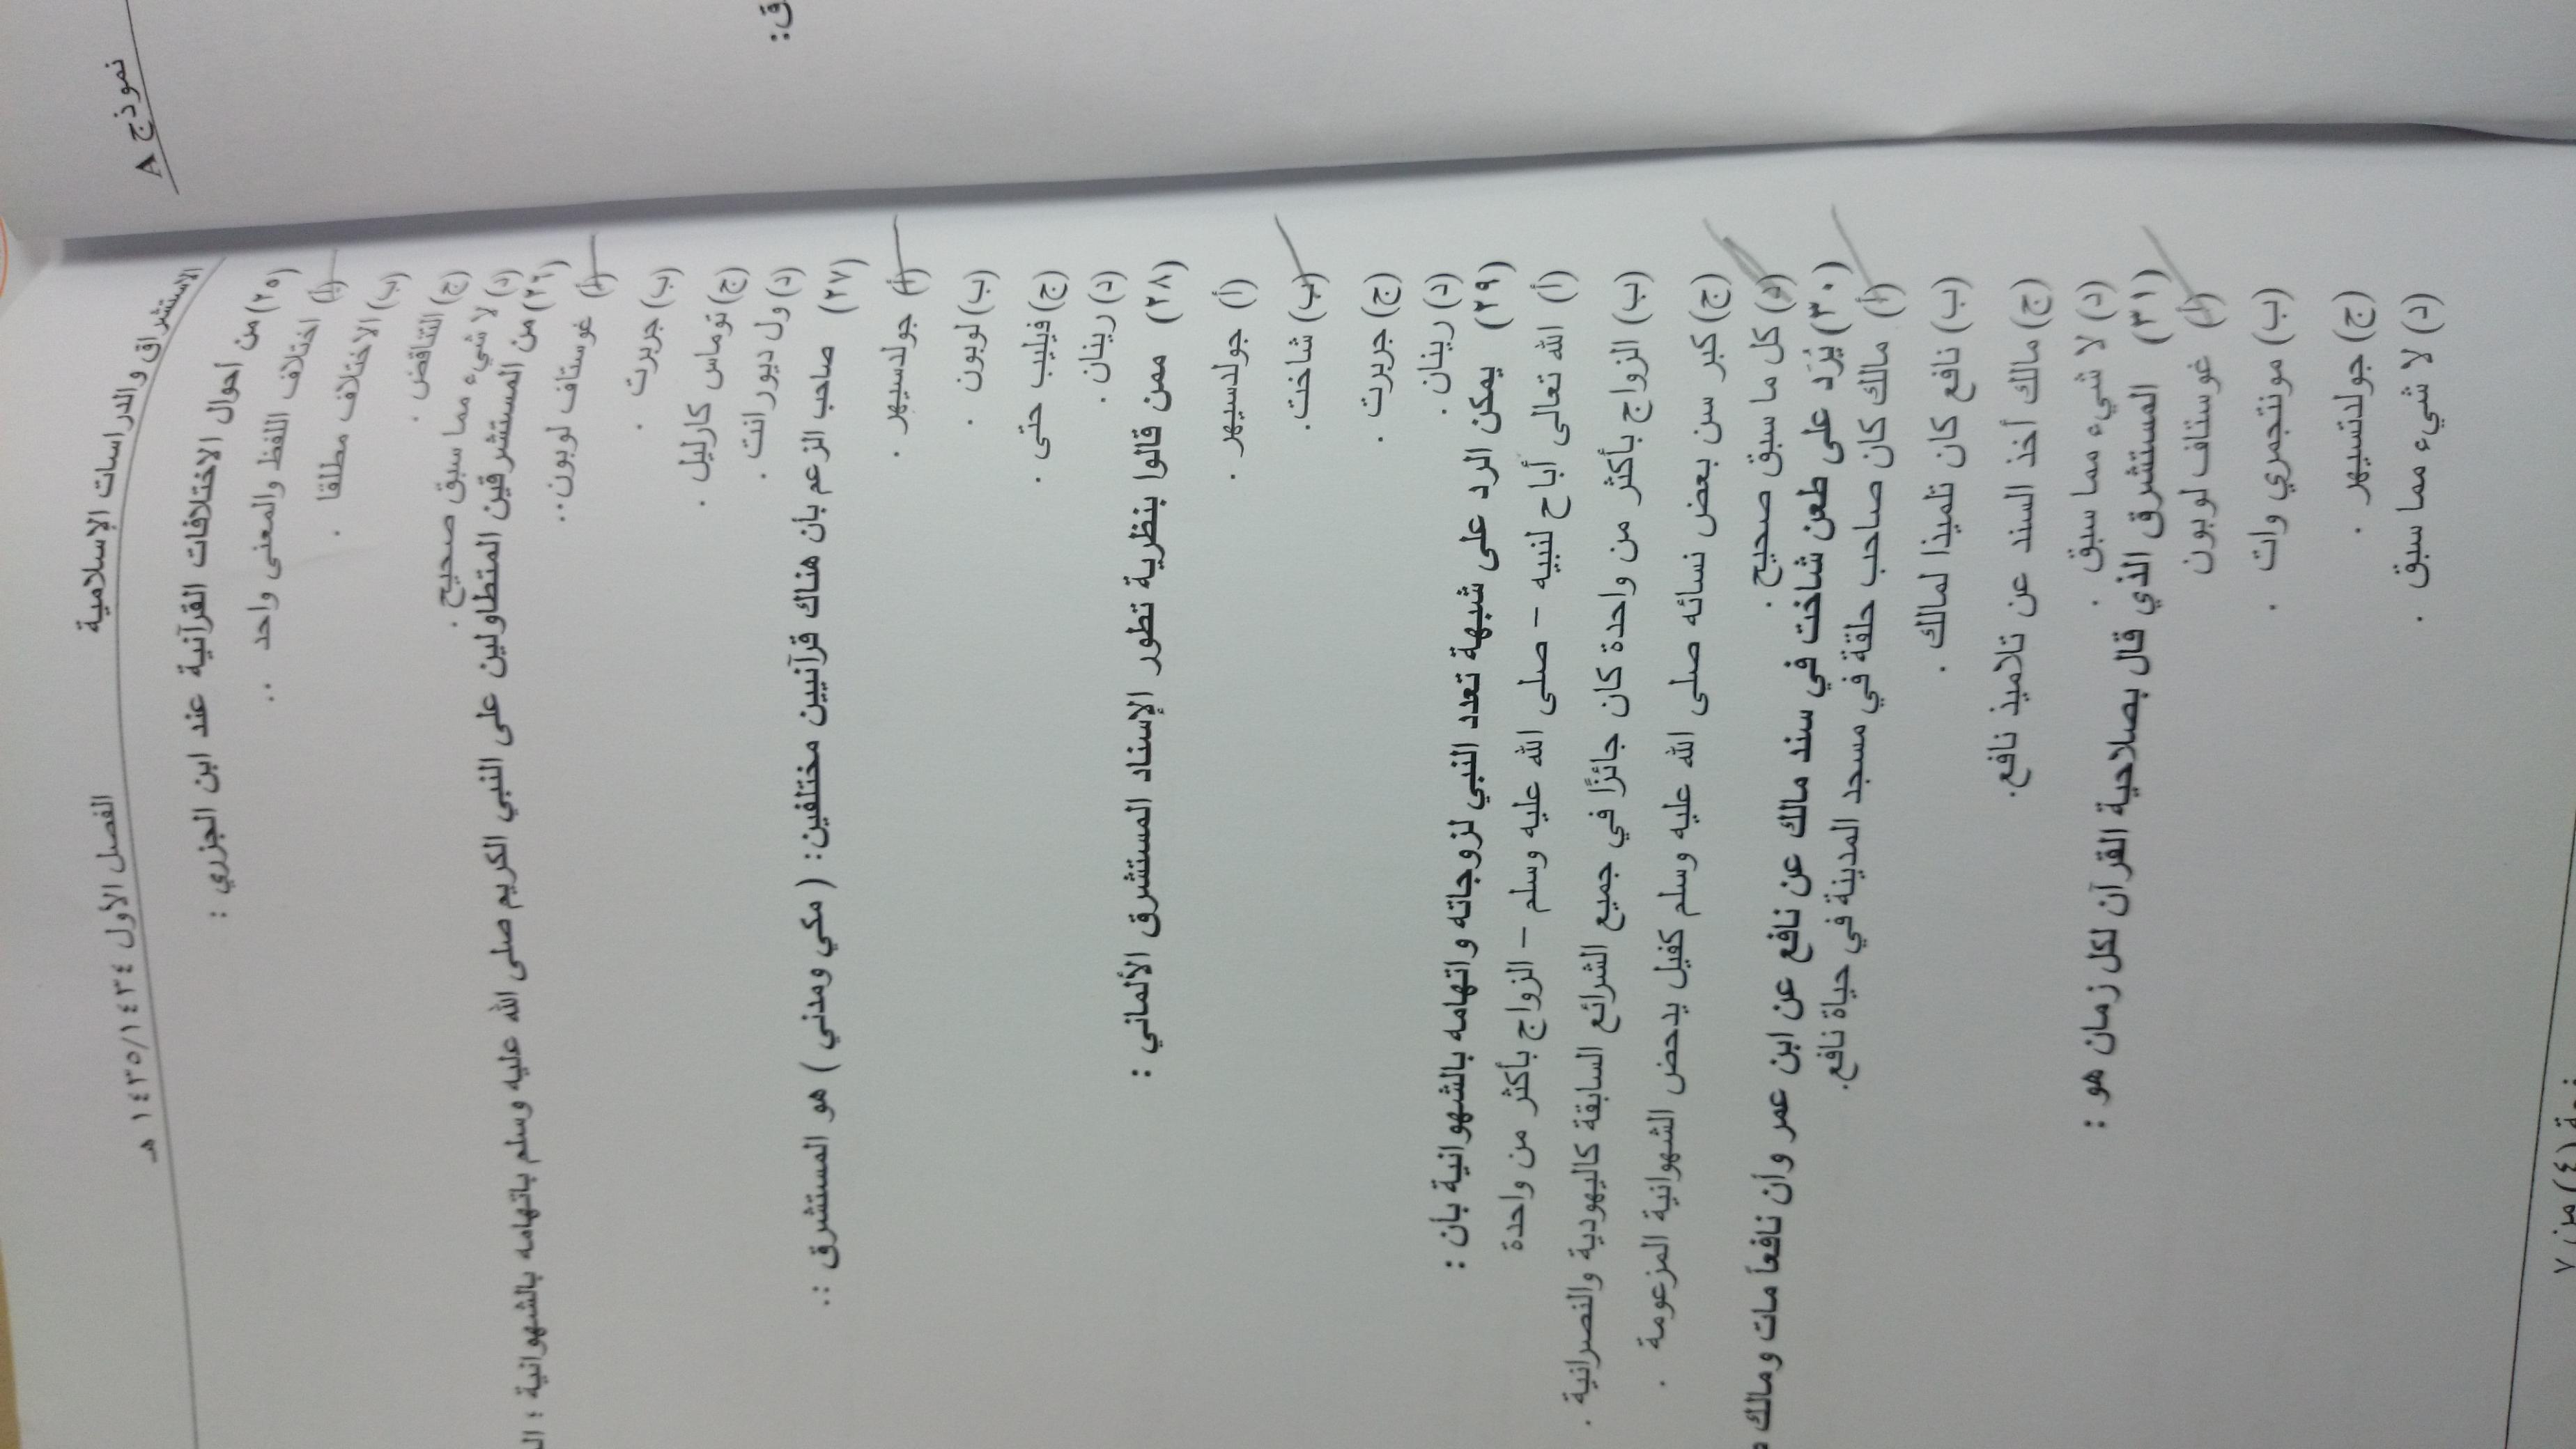 نموذج A
الاستشراق والدراسات الإسلامية
الفصل الأول ١٤٣٥/١٤٣٤ هـ
(٢٥) من أحوال الاختلافات القرآنية عند ابن الجزري :
(أ) اختلاف اللفظ والمعنى واحد ..
(ب) الاختلاف مطلقا .
(ج) التناقض .
(د) لا شيء مما سبق صحيح .
(٢٦) من المستشرقين المتطاولين على النبي الكريم صلى الله عليه وسلم باتهامه بالشهوانية ؛
(أ) غوستاف لوبون..
(ب) جربرت .
(ج) توماس كارليل .
(د) ول ديورانت .
(٢٧) صاحب الزعم بأن هناك قرآنيين مختلفين: ( مكي ومدني ) هو المستشرق :.
(أ) جولدسيهر .
(ب) لوبون .
(ج) فيليب حتى .
(د) رينان .
(٢٨) ممن قالوا بنظرية تطور الإسناد المستشرق الألماني :
(أ) جولدسيهر .
(ب) شاخت.
(ج) جربرت .
(د) رينان .
(٢٩) يمكن الرد على شبهة تعدد النبي لزوجاته واتهامه بالشهوانية بأن :
(أ) الله تعالى أباح لنبيه – صلى الله عليه وسلم – الزواج بأكثر من واحدة
(ب) الزواج بأكثر من واحدة كان جائزًا في جميع الشرائع السابقة كاليهودية والنصرانية .
(ج) كبر سن بعض نسائه صلى الله عليه وسلم كفيل يدحض الشهوانية المزعومة .
(د) كل ما سبق صحيح .
(٣٠) يُرَد على طعن شاخت في سند مالك عن نافع عن ابن عمر وأن نافعاً مات ومالك
(أ) مالك كان صاحب حلقة في مسجد المدينة في حياة نافع.
(ب) نافع كان تلميذا لمالك .
(ج) مالك أخذ السند عن تلاميذ نافع.
(د) لا شيء مما سبق .
(٣١) المستشرق الذي قال بصلاحية القرآن لكل زمان هو :
(أ) غوستاف لوبون
(ب) مونتجمري وات .
(ج) جولدتسيهر .
(د) لا شيء مما سبق .
(٤) من ٧